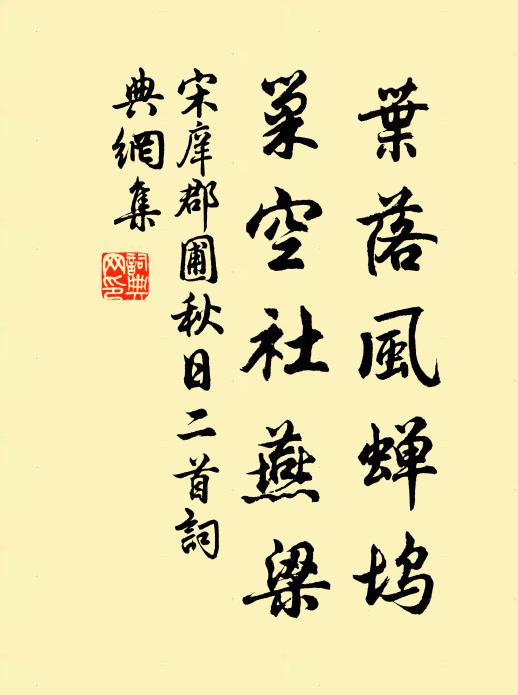 葉落風蝉塢
巢空社燕梁
宋庠郡圃秋日二首詞
典網集
詞典網印